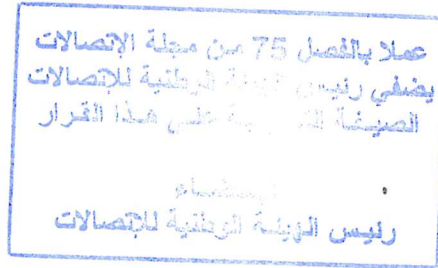 عملا بالفصل 75 من مجلة الإتصالات
يضفي رئيس الهيئة الوطنية للإتصالات
الصيغة على هذا القرار
الإمضاء
رئيس الهيئة الوطنية للإتصالات